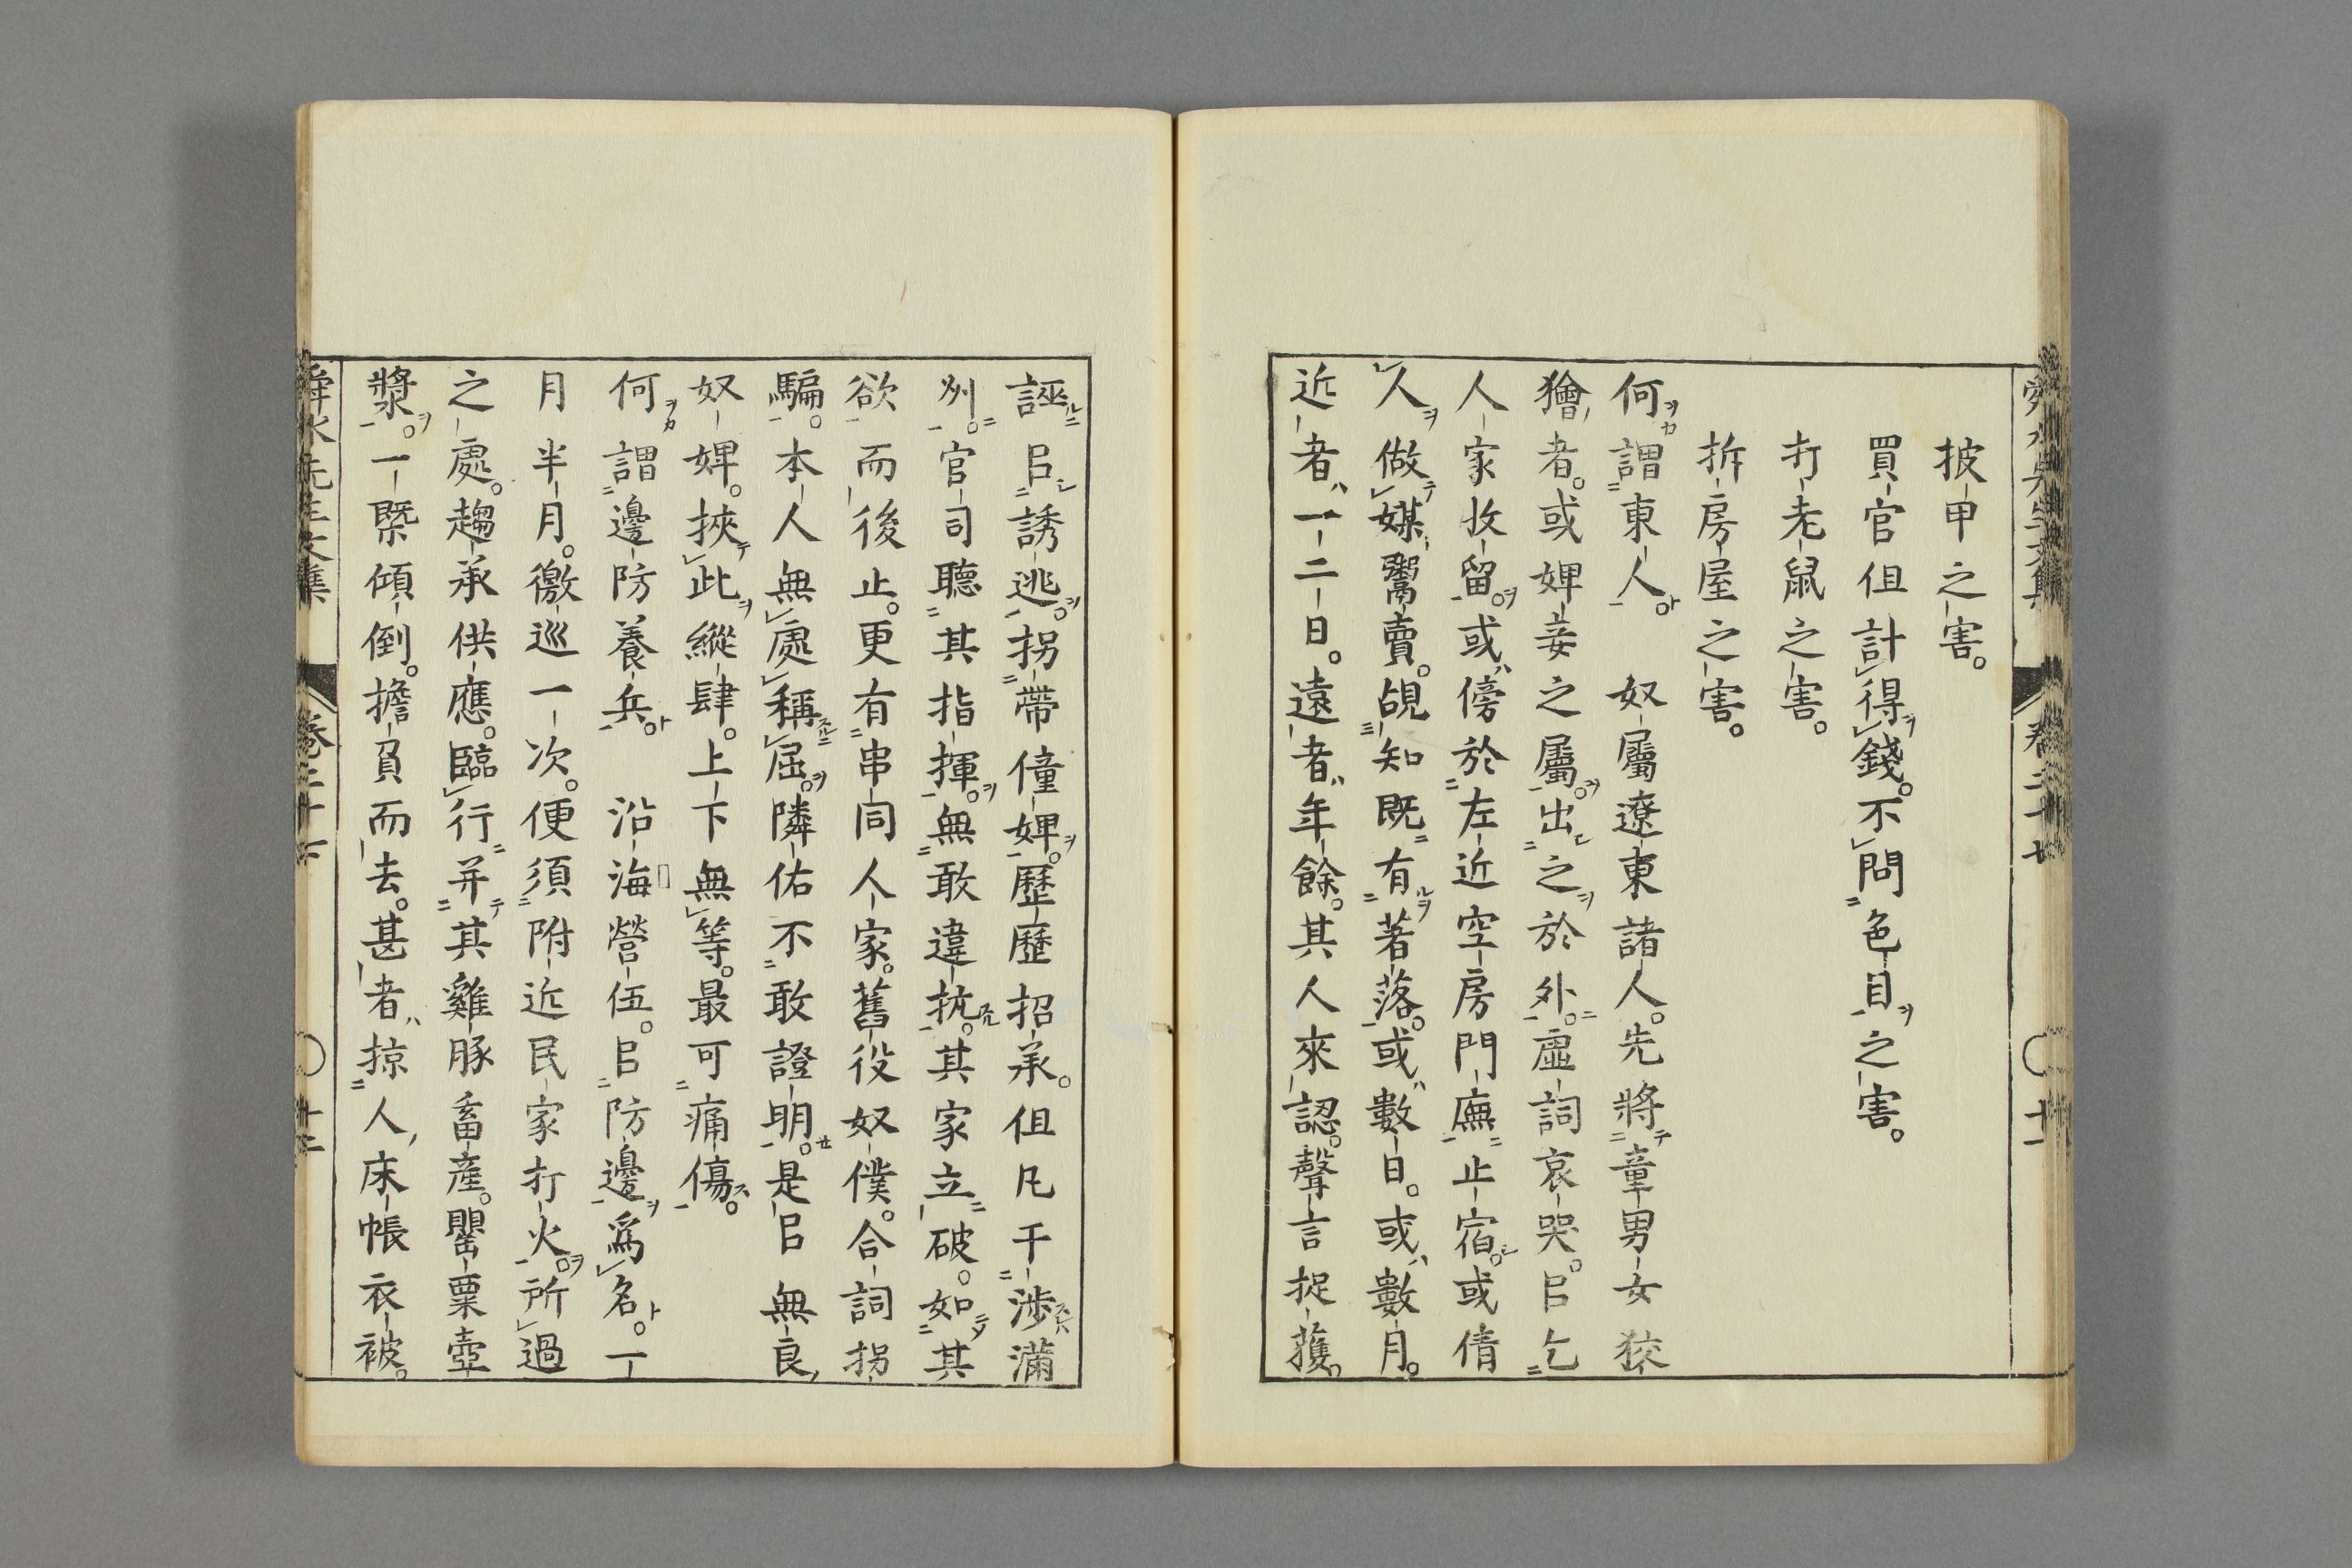 披甲之害。
買官但計得錢。不問色目之害。
打老鼠之害。
拆房屋之害。
何謂東人。 奴屬遼東諸人。先將童男女狡
獪者。或婢妾之屬。出之於外。虛詞哀哭。㠯乞
人家收留。或傍於左近空房門廡止宿。或倩
人做媒鬻賣。覘知既有著落。或數日。或數月。
近者一二日。遠者年餘。其人來認。聲言捉獲。
誣㠯誘逃。拐帶僮婢。歷歷招承。但凡干涉滿
州。官司聽其指揮。無敢違抗。其家立破。如其
欲而後止。更有串同人家。舊役奴僕。合詞拐
騙。本人無處稱屈。隣佑不敢證明。是㠯無良
奴婢。挾此縱肆。上下無等。最可痛傷。
何謂邊防養兵。 沿海營伍。㠯防邊爲名。一
月半月。徼巡一次。便須附近民家打火。所過
之處。趨承供應。臨行并其雞豚畜産。罌粟壺
漿。一槩傾倒。擔負而去。甚者掠人床帳衣被。
舜水先生文集 卷二十七 十二